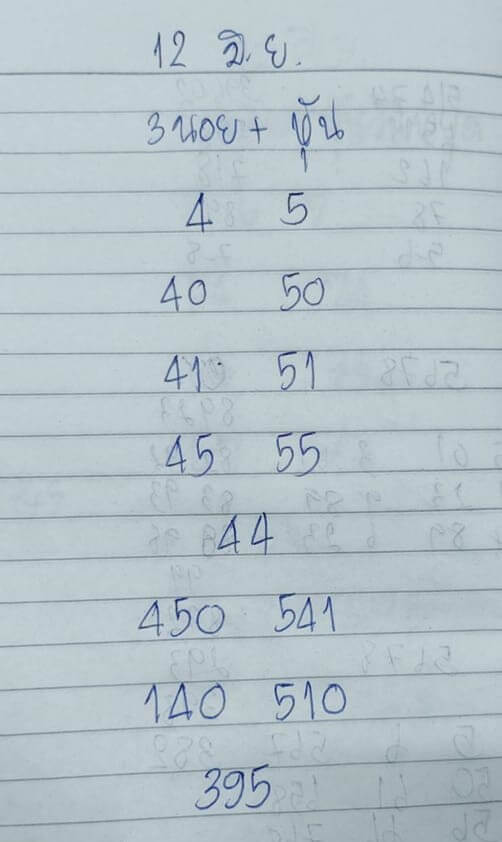 12 มิ.ย.
3 นอย + หุ้น
4 5
40 50
41 51
45 55
44
450 541
140 510
395